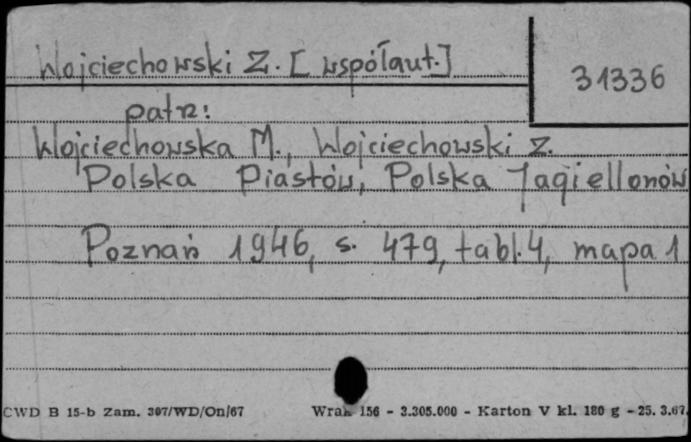 Wojciechowski Z. [współaut.]
31336
patrz:
Wojciechowska M., Wojciechowski Z.
Polska Piastów, Polska Jagiellonów
Poznań 1946, s. 479, tabl. 4, mapa 1
CWD B 15-b Zam. 307/WD/On/67 Wrak 156 - 3.305.000 - Karton V kl. 180 g - 25. 3.67.